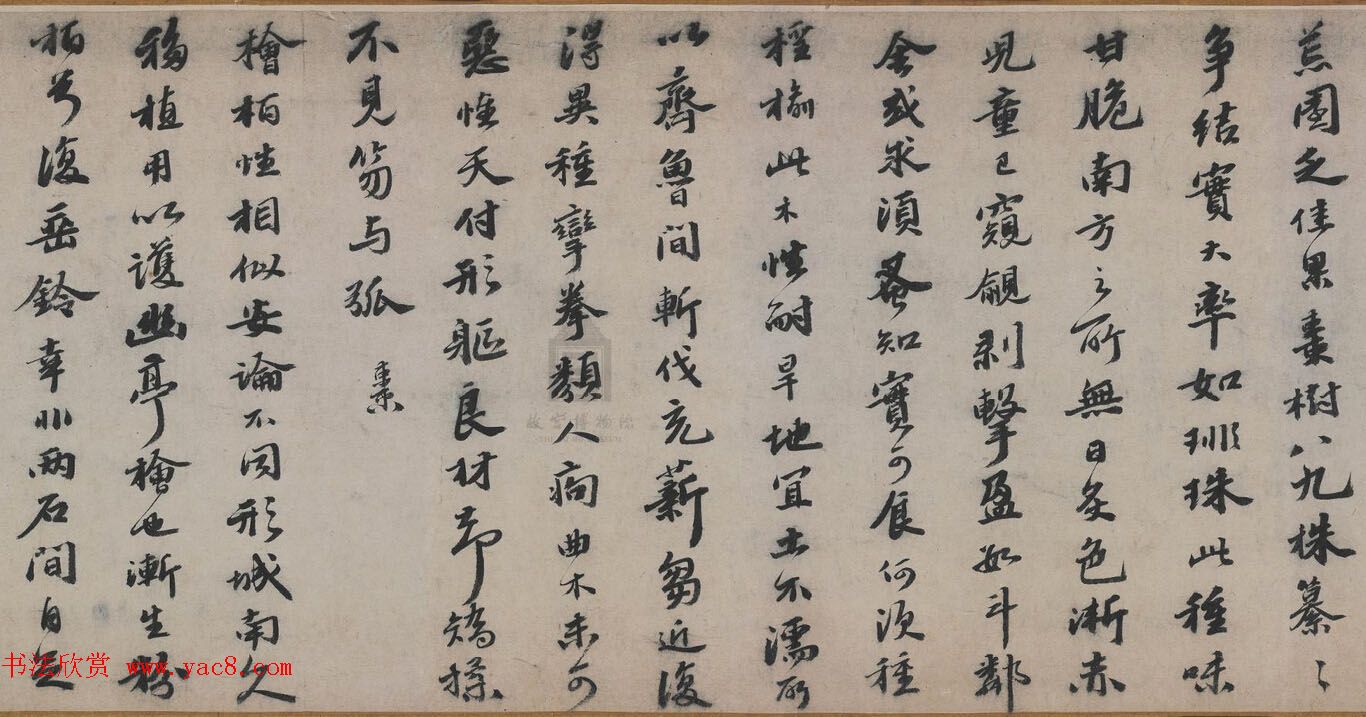 荒園乏佳果棗樹八九株纂〻
爭結實大率如琲珠此種味
甘脆南方之所無日炙色漸赤
兒童已窺覦剥擊盈數斗鄰
舍或求須蚤知實可食何須種
柽榆此木性耐旱地宜土不濡所
以齊魯間斬伐充薪芻近復
得異種攣拳類人痀曲木未可
惡惟天付形軀良材却矯揉
不見笏与弧
棗
檜柏性相似安論不同形城南人
移植用以護幽亭檜也漸生
柏兮復垂鈴幸非兩石間自
故宮博物院
书法欣赏 www.yac8.com